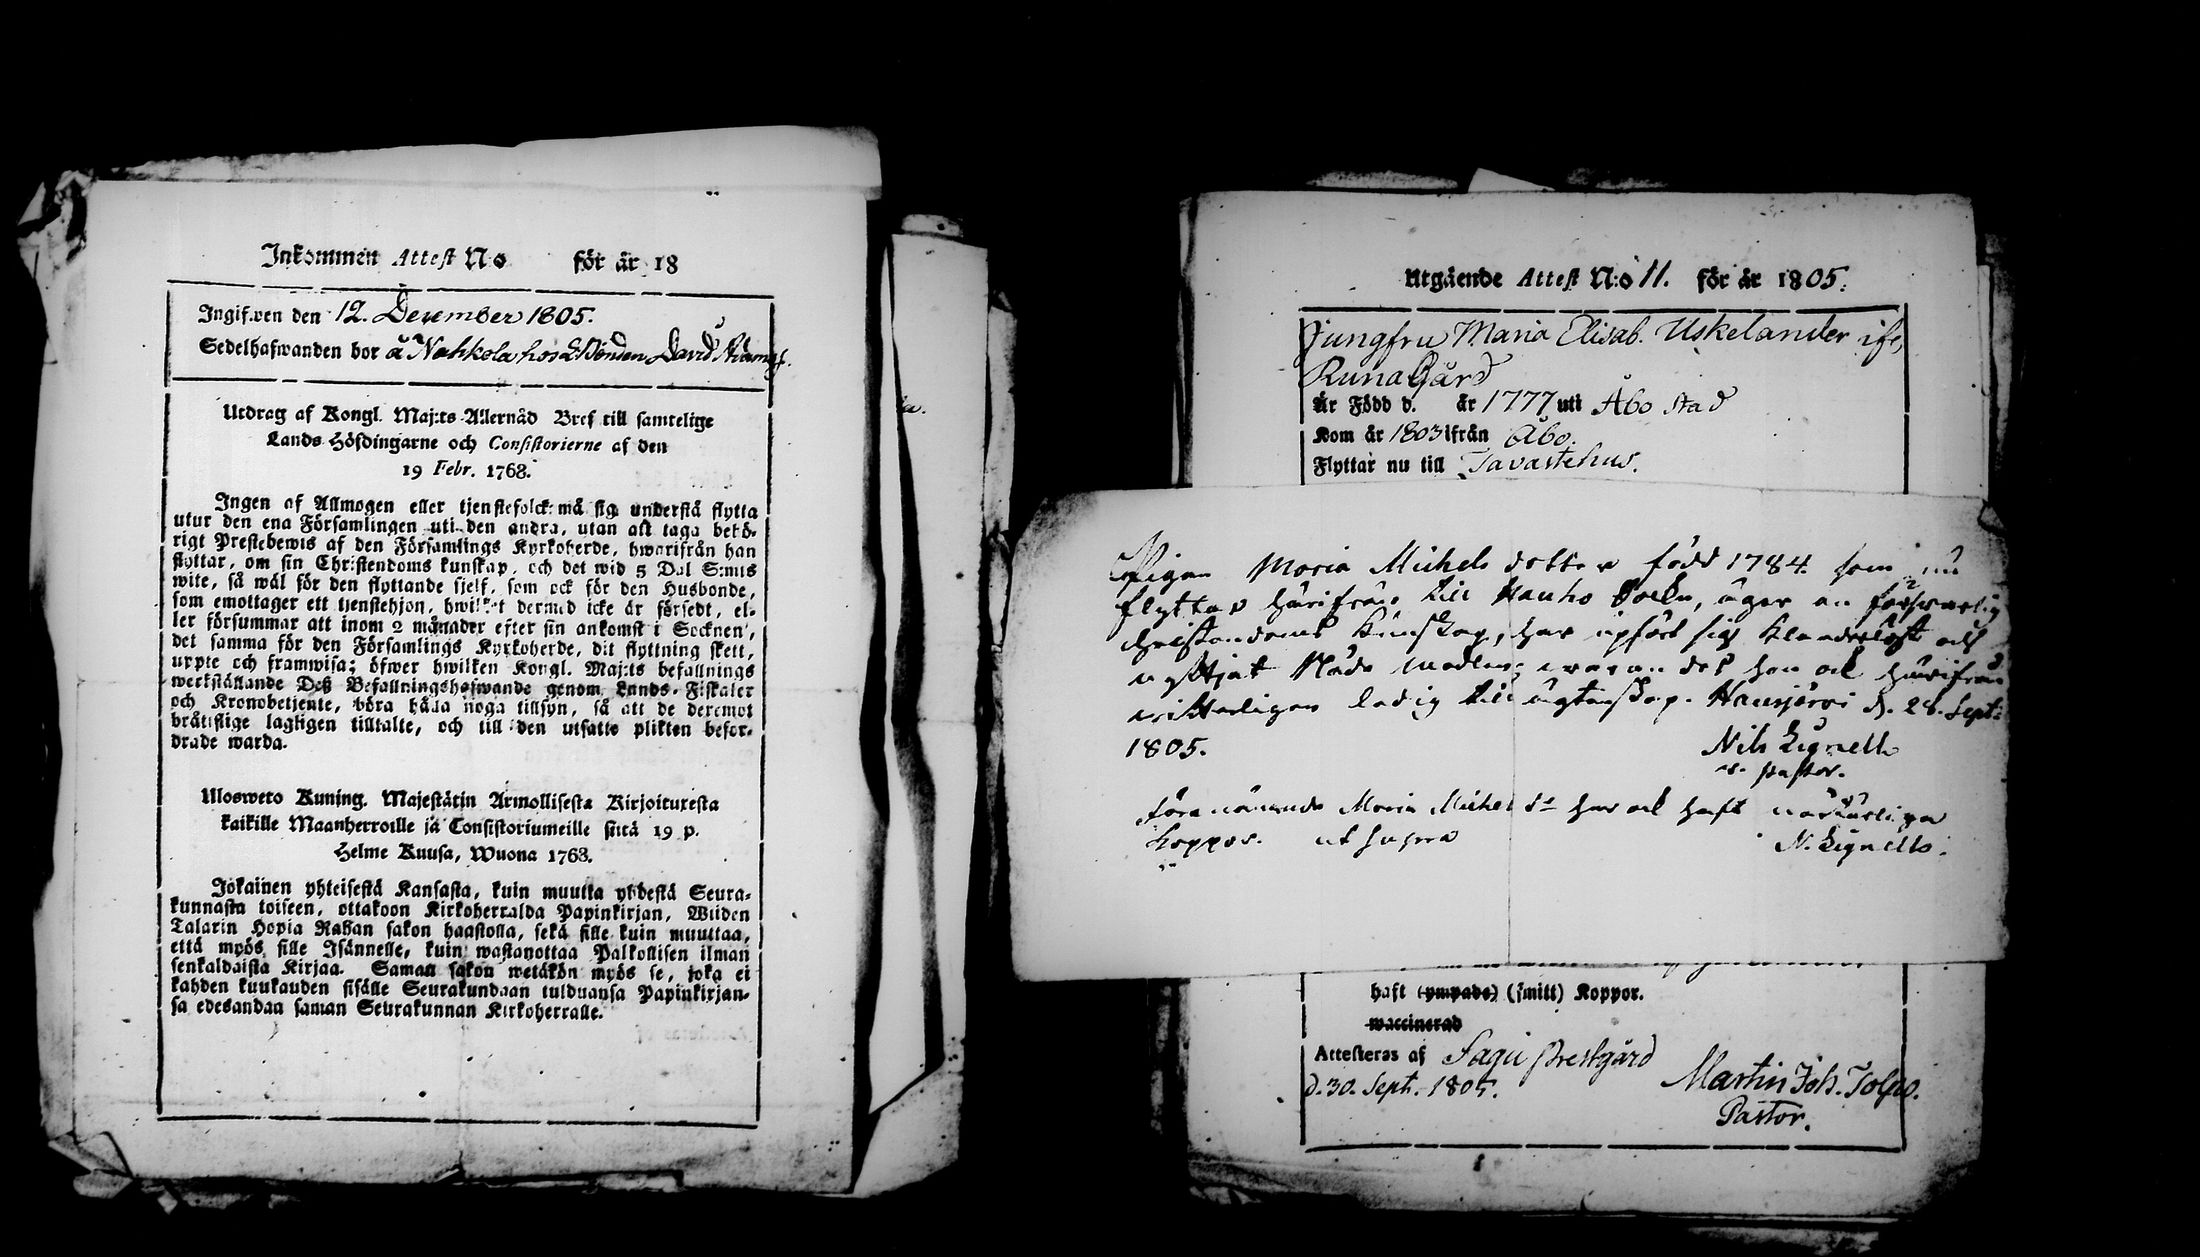 Inkommen Attest N:o för år 18
Ingifwen den 12. December 1805.
Sedelhafwanden bor å Nahkola hos Bonden David Adamsf.
Utdrag af Kongl. Maj:ts Allernåd Bref till samtelige
Lands Höfdingarne och Consistorierne af den
19 Febr. 1768.
Ingen af Allmogen eller tjenstefolck må sig understå flytta
utur den ena Församlingen uti den andra, utan att taga behö-
rigt Prestebewis af den Församlings Kyrkoherde, hwarifrån han
flyttar, om sin Christendoms kunskap, och det wid 5 Dal S:mts
wite, så wäl för den flyttande sjelf, som ock för den Husbonde,
som emottager ett tjenstehjon, hwilket dermed icke är försedt, el-
ler försummar att inom 2 månader efter sin ankomst i Socknen,
det samma för den Församlings Kyrkoherde, dit flyttning skett,
uppte och framwisa; öfwer hwilken Kongl. Maj:ts befallnings
werkställande Deß Befallningshafwande genom Lands-Fiskaler
och Kronobetjente, böra hålla noga tillsyn, så att de deremot
brätislige lagligen tilltalte, och till den utsatte plikten befor-
drade warda.
Ulosweto Kuning. Majestätin Armollisesta Kirjoituxesta
kaikille Maanherroille ja Consistoriumeille siitä 19 p.
Helme Kuusa, Wuona 1768.
Jokainen yhteisestä Kansasta, kuin muutta yhdestä Seura-
kunnasta toiseen, ottakoon Kirkoherralda Papinkirjan, Wiiden
Talarin Hopia Rahan sakon haastolla, sekä sille kuin muuttaa,
että myös sille Isännelle, kuin wastanottaa Palkollisen ilman
senkaldaista Kirjaa. Saman sakon wetäkön myös se, joka ei
kahden kuukauden sisälle Seurakundaan tulduansa Papinkirjan-
sa edesandan saman Seurakunnan Kirkoherralle.
Utgående Attest N:o 11. för år 1805.
Jungfru Maria Elisab. Uskelander ifr.
Runa Gård
Är Född d. år 1777 uti Åbo stad
Kom år 1803 ifrån Åbo.
Flyttar nu till Tavastehus.
Pigan Maria Michels dotter född 1784. som nu
flyttar härifrån till Hauho Sockn, äger en försvarlig
christendoms kunskap, har upfört sig klanderlöst och
nyttjat Nåde medlen; warandes hon ock härifrån
ledig till ägtenskap. Hausjärvi d. 28. Sept:
1805.
Nils Lignell
v. pastor.
Förenämnde Maria Michels dr har ock haft naturliga
koppor. ut supra
N. Lignell.
haft (ympade) (smitt) Koppor.
waccinerad
Attesteras af Sagu Prestgård
d. 30. Sept. 1805.
Martin Joh. Tolpo.
Pastor.